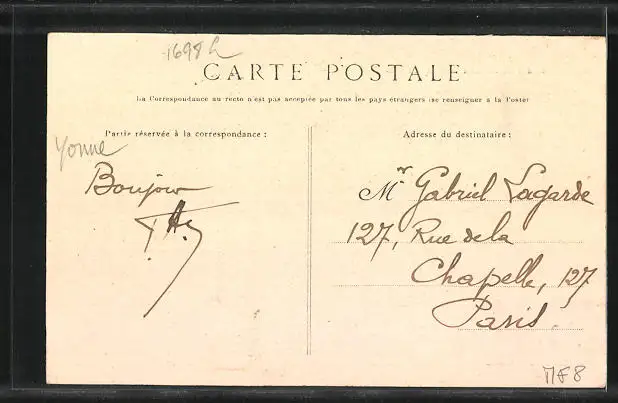 1698
CARTE POSTALE
La Correspondance au recto n'est pas acceptée par tous les pays étrangers (se renseigner à la Poste)
Partie réservée à la correspondance :
Adresse du destinataire :
Yonne
Bonjour
Mr Gabriel Lagarde
127, Rue de la
Chapelle, 127
Paris.
MF8